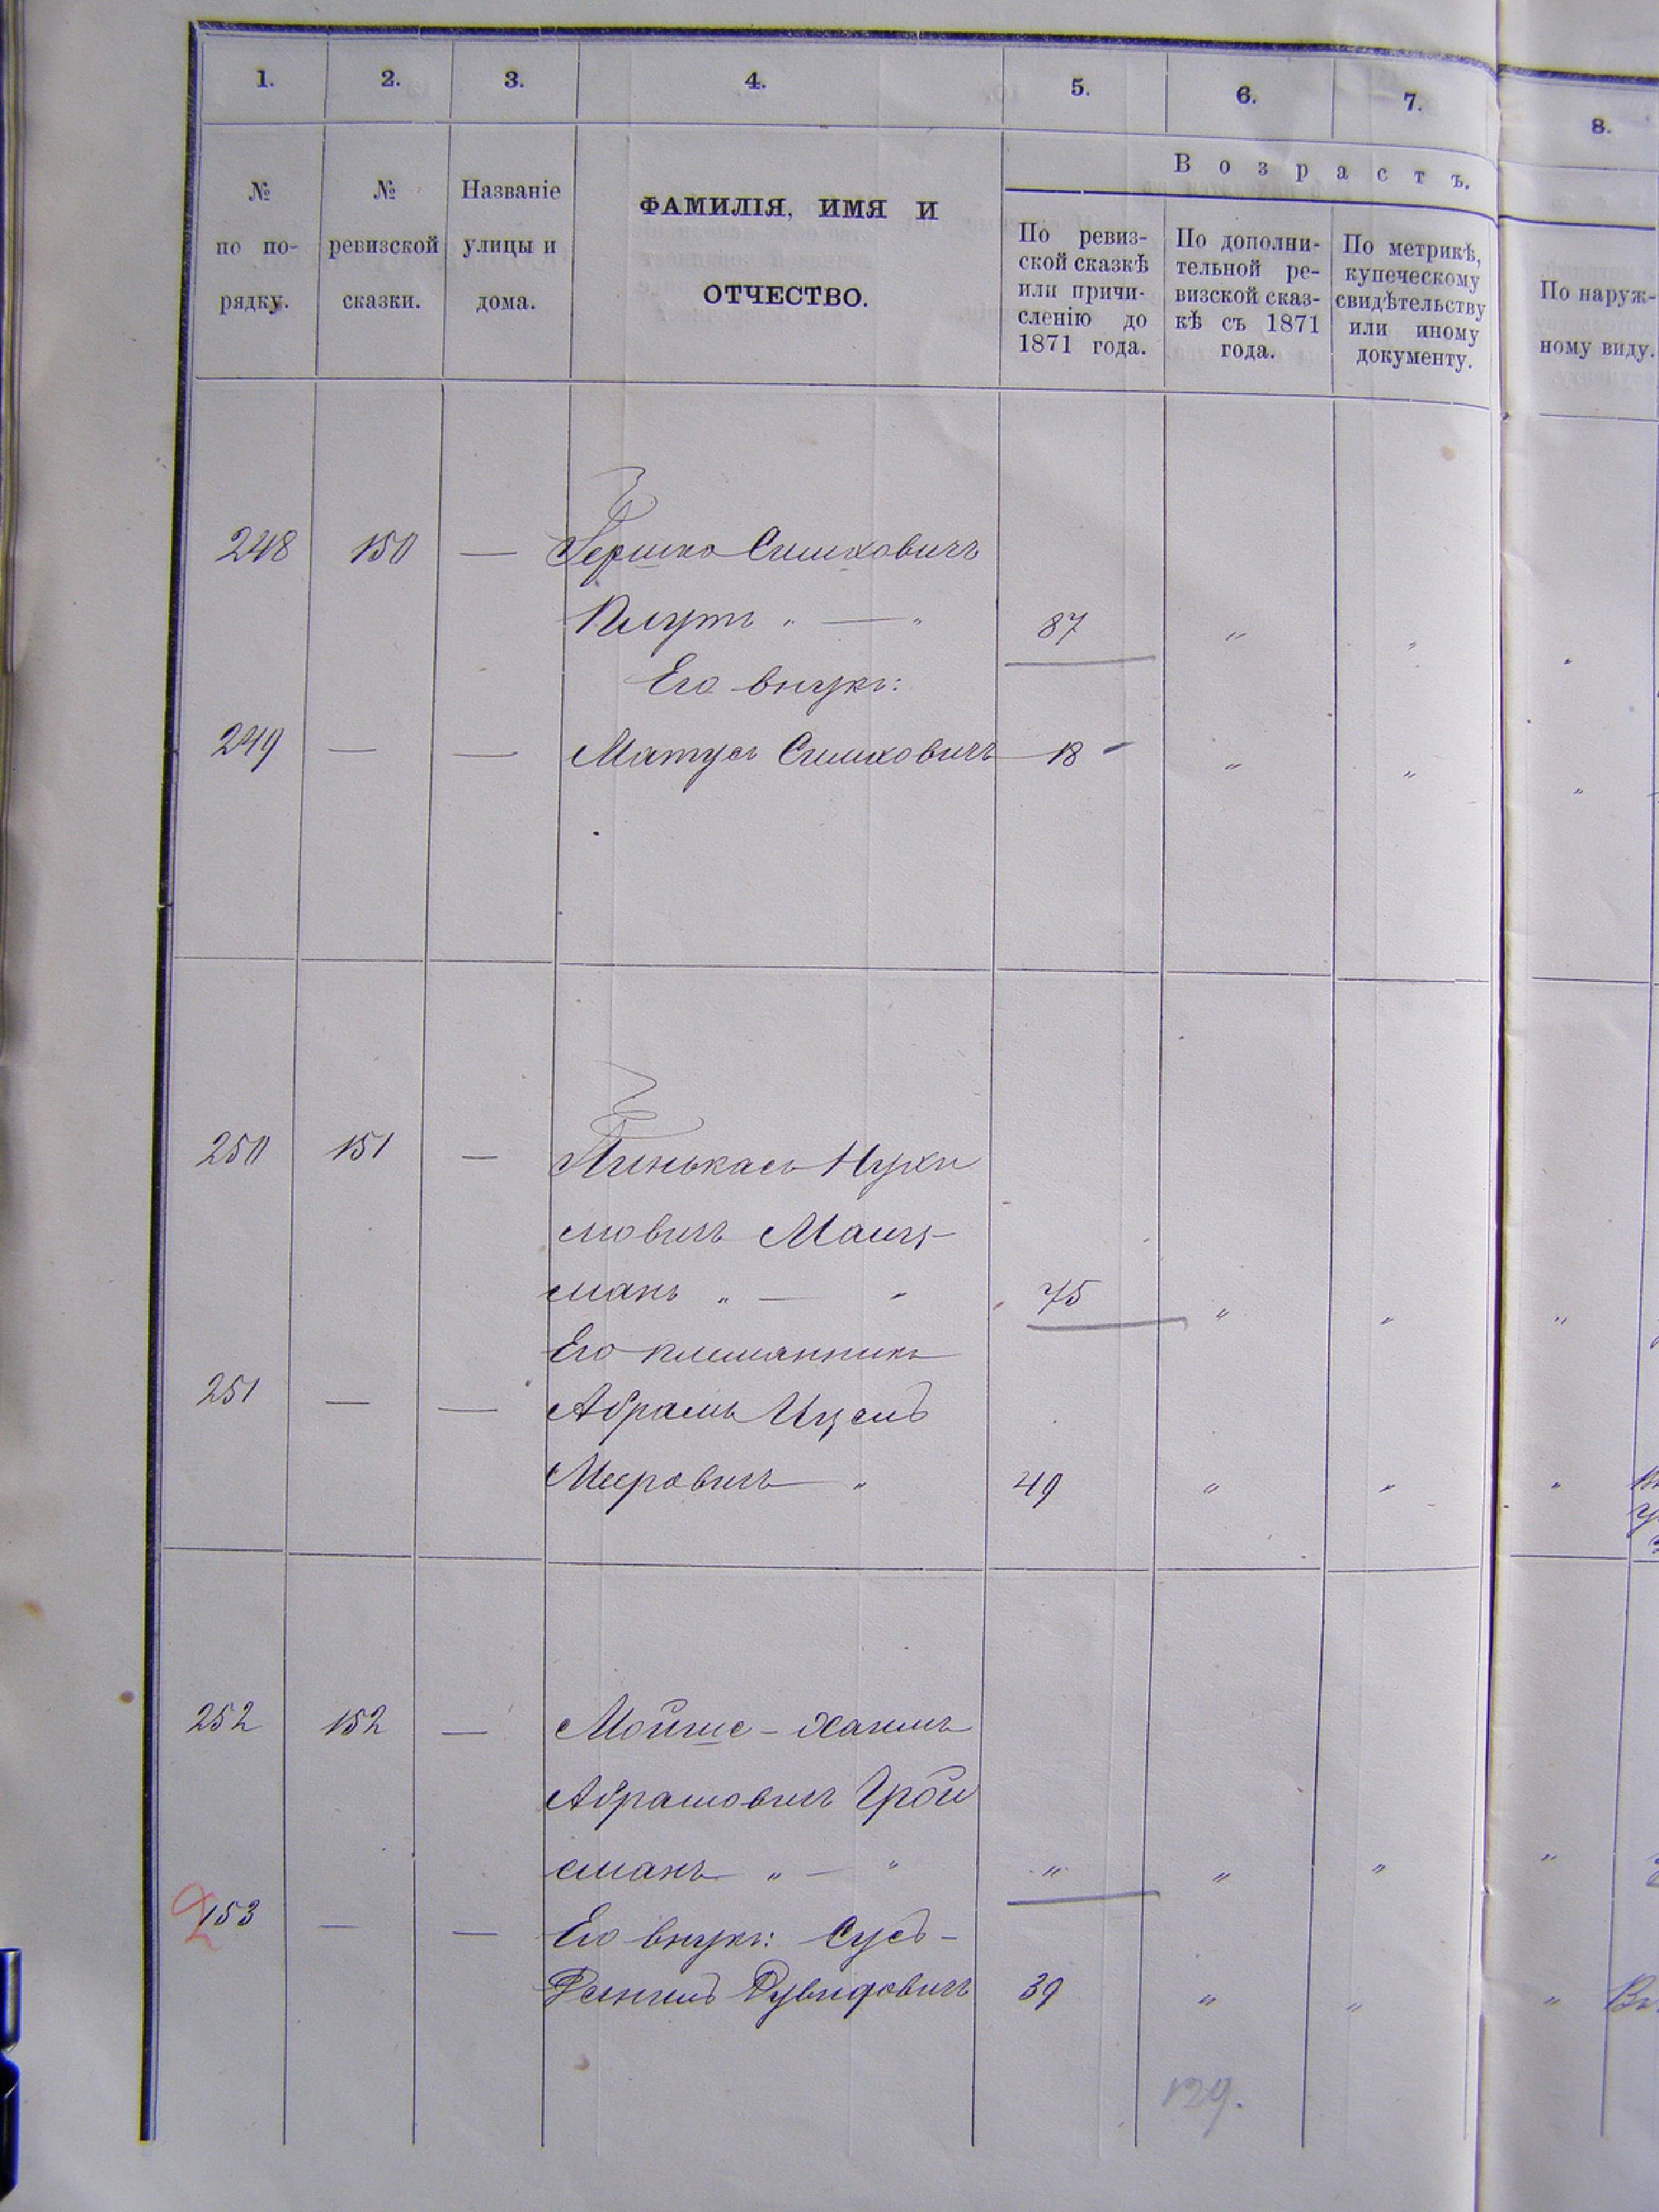 1. 2. 3. 4. 5. 6. 7. 8.
Возрастъ.
№ по порядку.
№ ревизской сказки.
Названіе улицы и дома.
ФАМИЛІЯ, ИМЯ И
ОТЧЕСТВО.
По ревиз-
ской сказкѣ
или причи-
сленію до
1871 года.
По дополни-
тельной ре-
визской сказ-
кѣ съ 1871
года.
По метрикѣ,
купеческому
свидѣтельству
или иному
документу.
По наруж-
ному виду.
248 150 — Гершко Симховичъ
Плутъ " — " 87 " " "
Его внукъ:
249 — — Матусъ Симховичъ 18 " " "
250 151 — Пинькасъ Нухи
мовичъ
манъ " — " 75 " " "
Его племянникъ
251 — — Абрамъ Ицекъ
Мееровичъ " 49 " " "
252 152 — Мойше-Хаимъ
Абрамовичъ Грой
сманъ " — " " " " "
2153 — — Его внукъ:
Рувидовичъ 39 " " "
129.